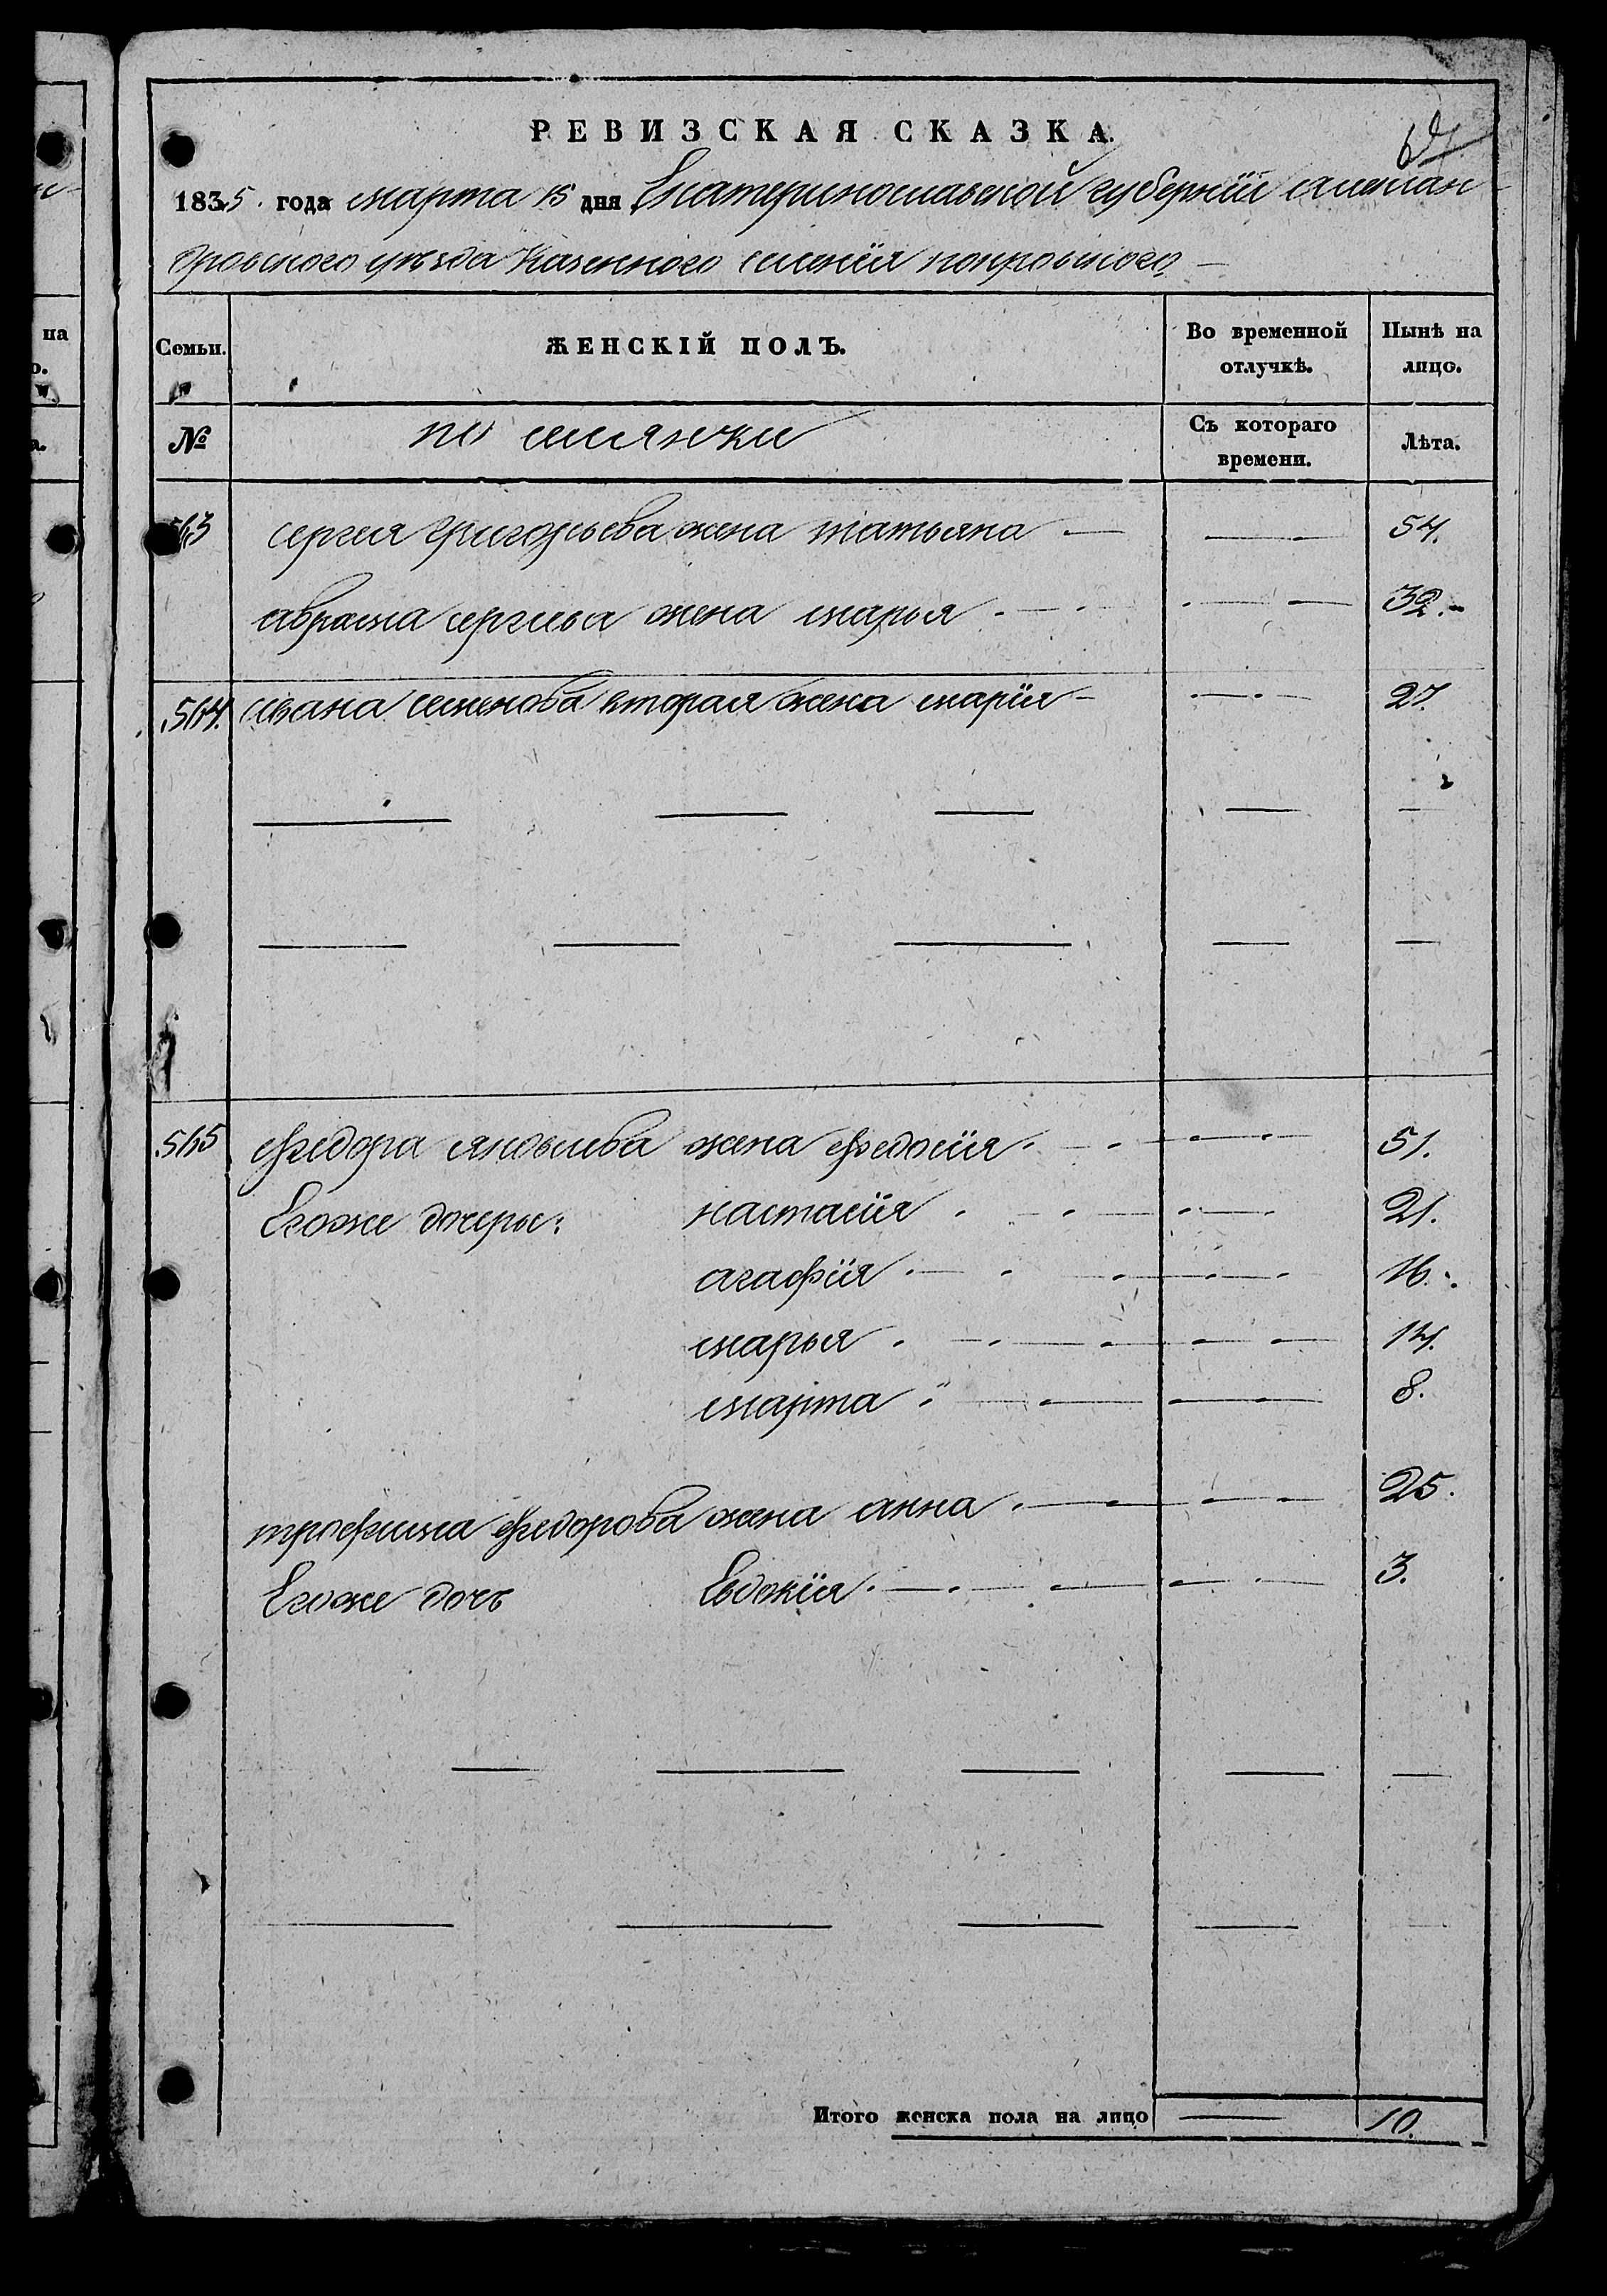 РЕВИЗСКАЯ СКАЗКА.
1835. года марта 15 дня Екатеринославской губернїи алексан
дровского уезда Казенного селенїя покровского
Семьи. ЖЕНСКІЙ ПОЛЪ. Во временной отлучкѣ. Нынѣ на лицо.
№ Съ котораго времени. Лѣта.
563 сергея Григорьева жена татьяна 54.
абрама сергеева жена марья 32.
564. ивана семенова вторая жена марїя 27.
565 федора яковлева жена федосїя 51.
Егоже дочеры: настасїя 21.
агафїя 16.
марья 14.
марта 8.
трофима федорова жена анна 25.
Егоже дочь Евдокїя 3.
Итого женска пола на лицо 10.
на
о.
а.